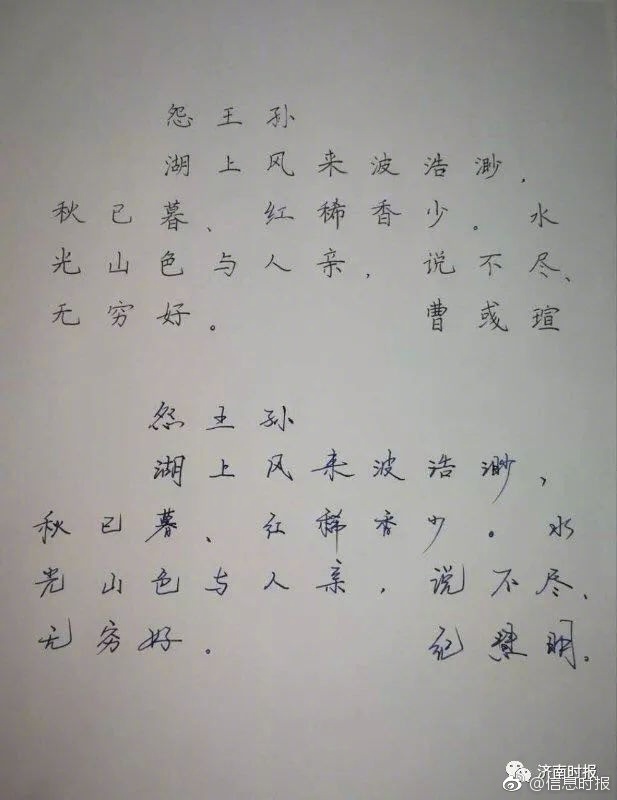 怨王孙
湖上风来波浩渺，
秋已暮、红稀香少。水
光山色与人亲，说不尽、
无穷好。 曹或瑄
怨王孙
湖上风来波浩渺，
秋已暮、红稀香少。水
光山色与人亲，说不尽、
无穷好。 纪慧明。
济南时报
@信息时报